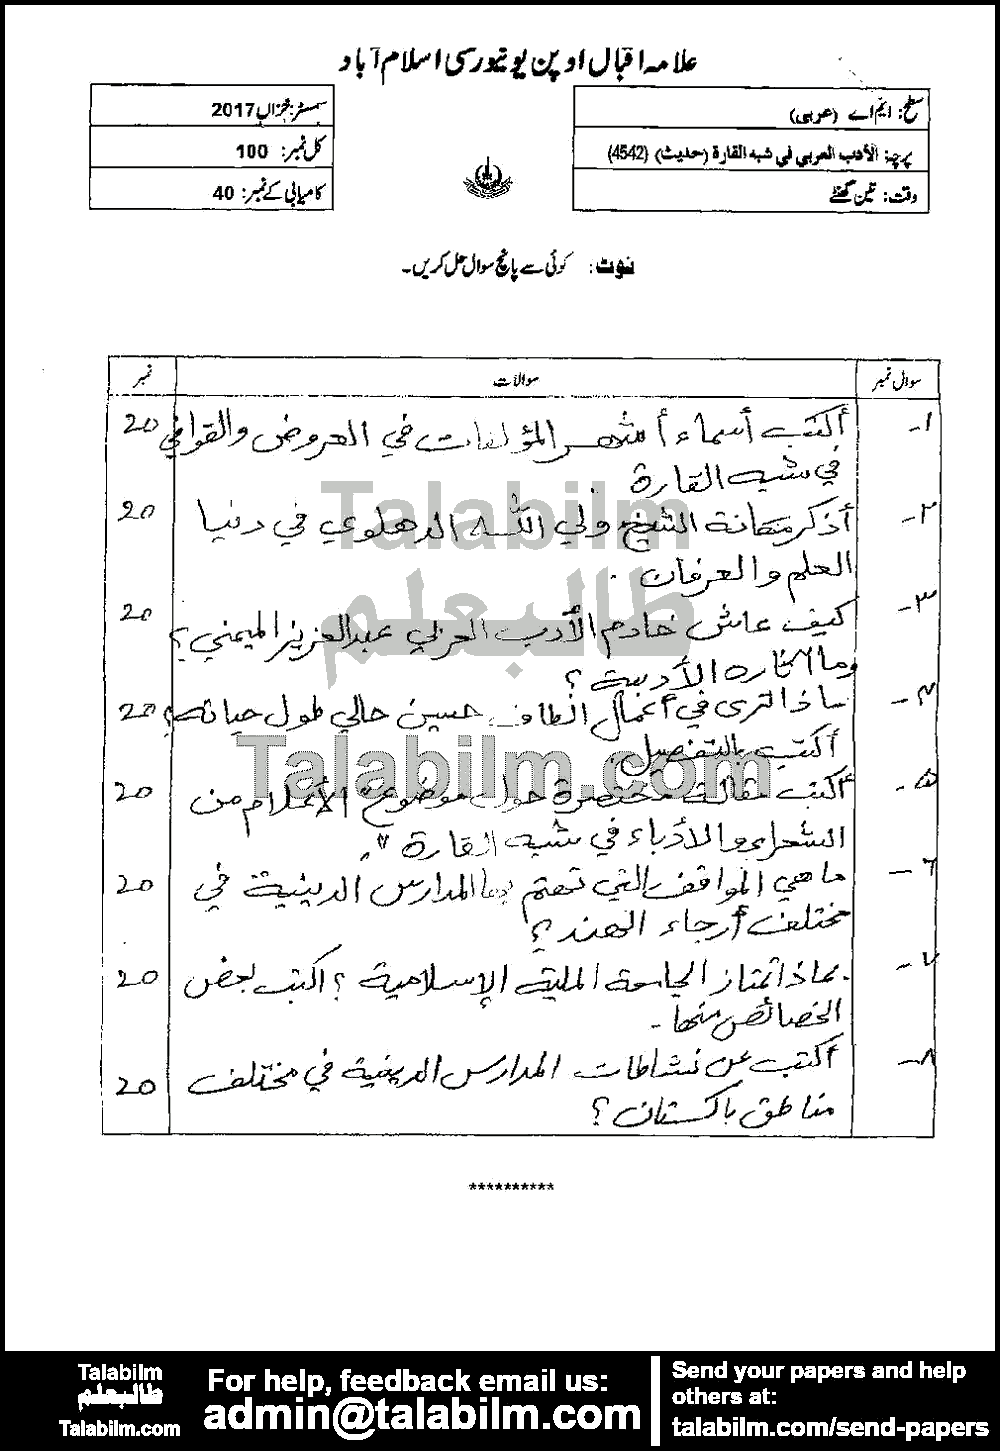 علامہ اقبال اوپن یونیورسٹی اسلام آباد
سطح: ایم اے (عربی)
پرچہ: الأدب العربي في شبه القارة (حديث) (4542)
وقت: تین گھنٹے
سمسٹر: خزاں 2017
کل نمبر: 100
کامیابی کے نمبر: 40
نوٹ: کوئی سے پانچ سوال حل کریں۔
سوال نمبر سوالات نمبر
۱- أكتب أسماء أشهر المؤلفات في العروض والقوافي 20
في شبه القارة
۲- أذكر مكانة الشيخ ولي الله الدهلوي في دنيا 20
العلم والعرفان.
۳- كيف عاش خادم الأدب العربي عبدالعزيز الميمني؟ 20
وما آثاره الأدبية؟
۴- ماذا ترى في أعمال الطاف حسين حالي طول حياته؟ 20
أكتب بالتفصيل.
۵- أكتب مقالة مختصرة حول موضوع "الأعلام من 20
الشعراء والأدباء في شبه القارة".
٦- ما هي المواقف التي تهتم بها المدارس الدينية في 20
مختلف أرجاء الهند؟
۷- بماذا تمتاز الجامعة الملية الإسلامية؟ اكتب بعض 20
الخصائص منها-
۸- أكتب عن نشاطات المدارس الدينية في مختلف 20
مناطق باكستان؟
**********
Talabilm
طالبعلم
Talabilm.com
Talabilm
طالبعلم
Talabilm.com
For help, feedback email us:
admin@talabilm.com
Send your papers and help
others at:
talabilm.com/send-papers